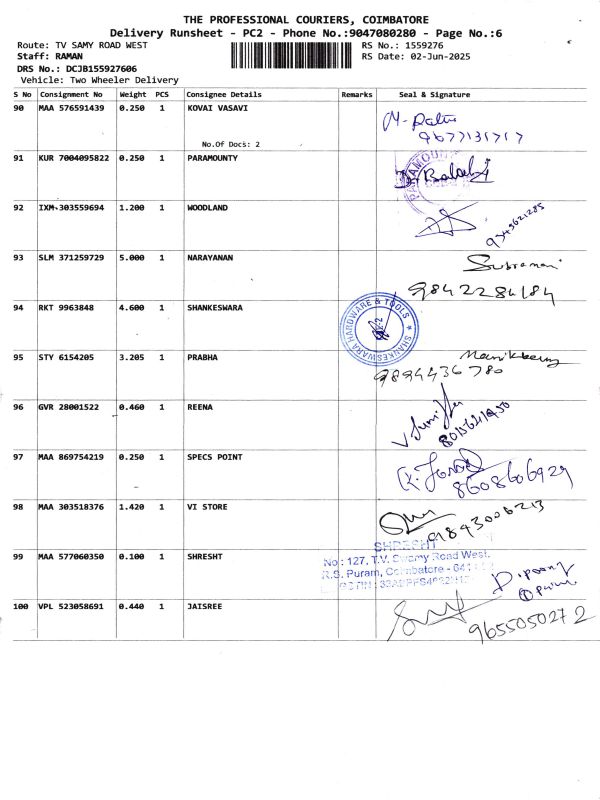 THE PROFESSIONAL COURIERS, COIMBATORE
Delivery Runsheet - PC2 - Phone No.:9047080280 - Page No.:6
Route: TV SAMY ROAD WEST RS No.: 1559276
Staff: RAMAN RS Date: 02-Jun-2025
DRS No.: DCJB155927606
Vehicle: Two Wheeler Delivery
S No Consignment No Weight PCS Consignee Details Remarks Seal & Signature
90 MAA 576591439 0.250 1 KOVAI VASAVI
No.Of Docs: 2
9677131717
91 KUR 7004095822 0.250 1 PARAMOUNTY
92 IXM 303559694 1.200 1 WOODLAND
93 SLM 371259729 5.000 1 NARAYANAN
9842284184
94 RKT 9963848 4.600 1 SHANKESWARA
SHANKESWARA HARDWARE & TOOLS
95 STY 6154205 3.205 1 PRABHA
9894436780
96 GVR 28001522 0.460 1 REENA
97 MAA 869754219 0.250 1 SPECS POINT
8608606929
98 MAA 303518376 1.420 1 VI STORE
9843006213
99 MAA 577060350 0.100 1 SHRESHT
SHRESHT
No : 127, T.V. Swamy Road West.
R.S. Puram, Coimbatore -
100 VPL 523058691 0.440 1 JAISREE
9655050272